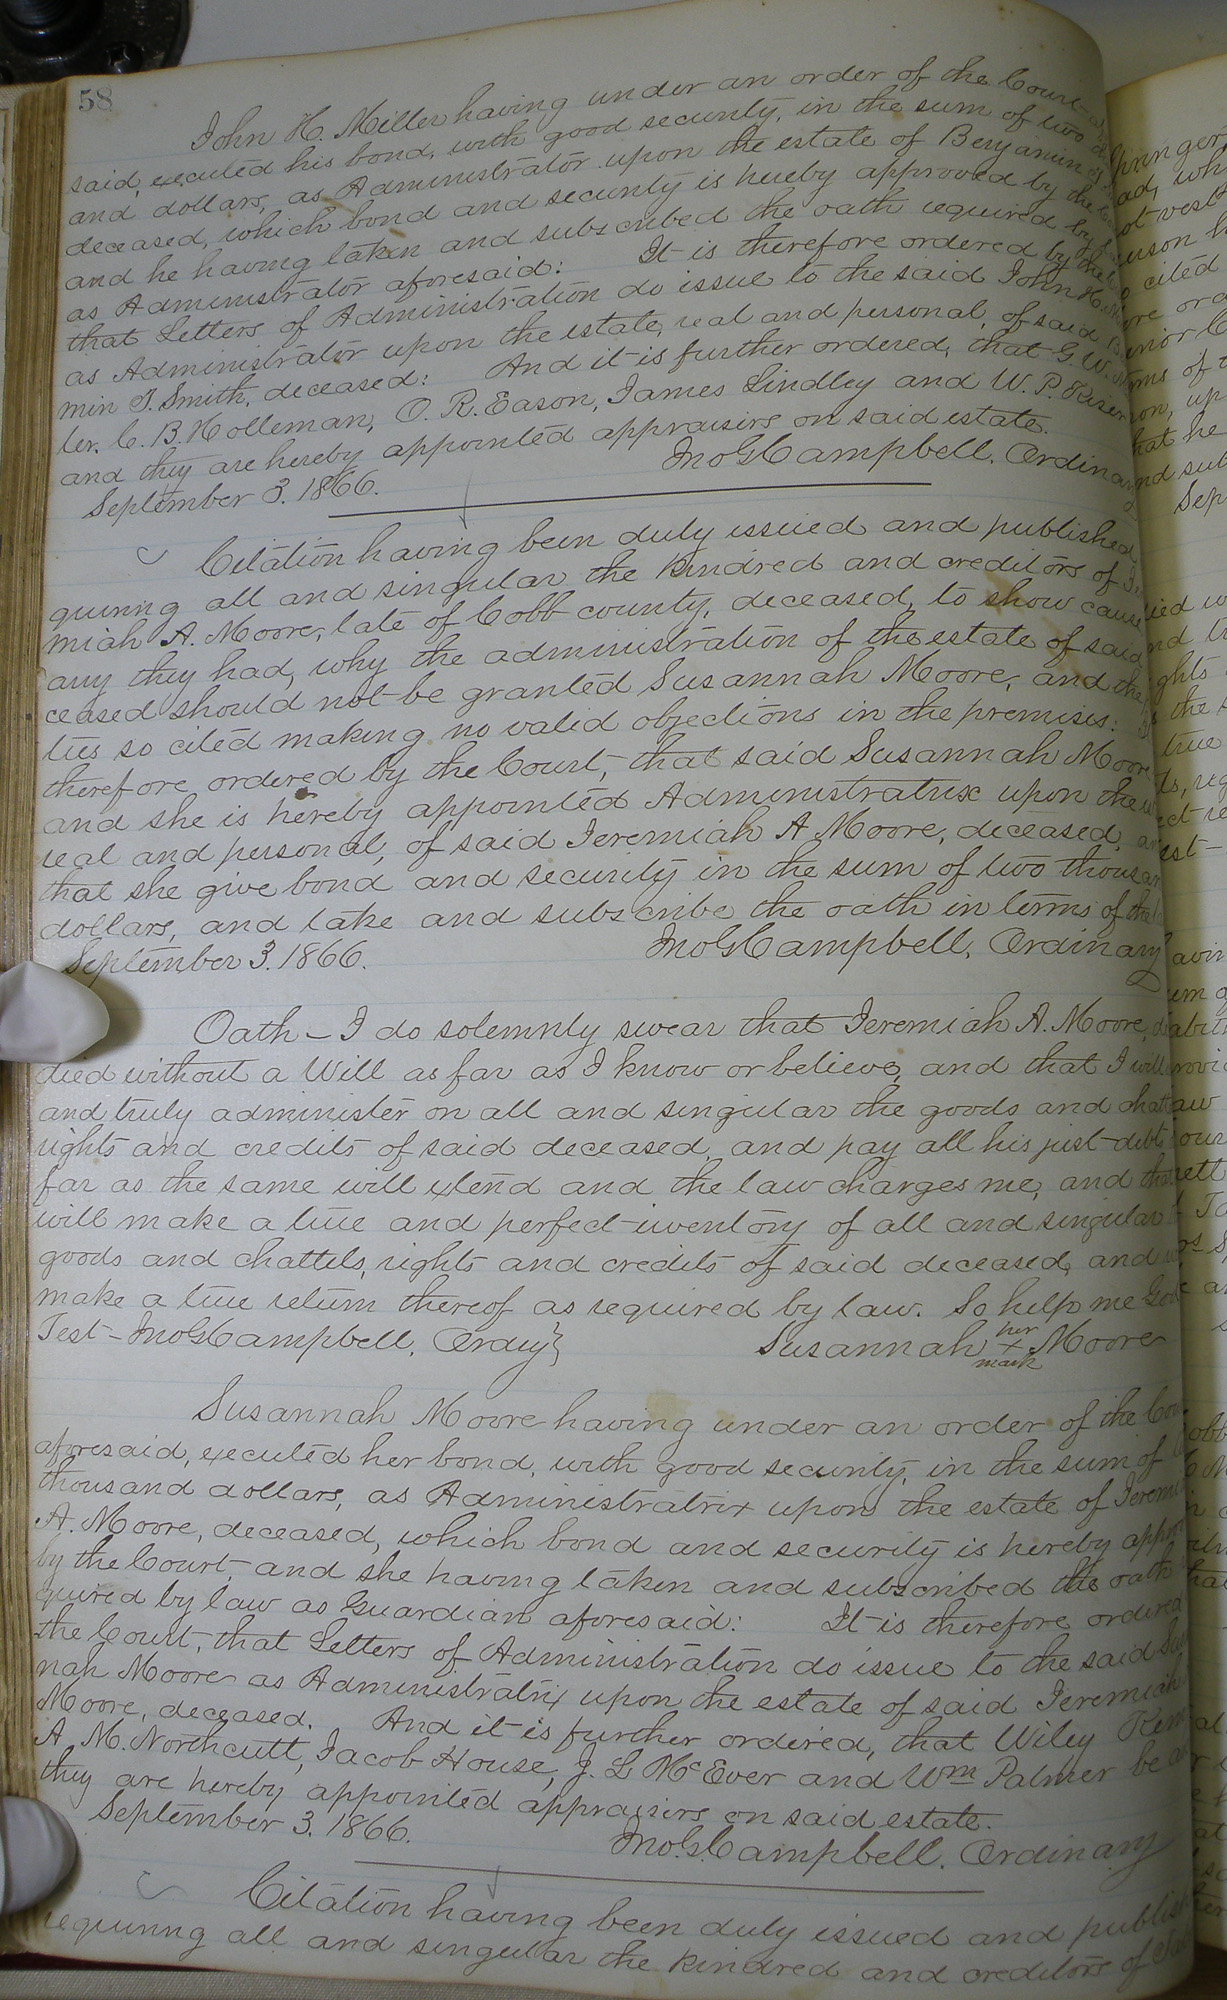 58
John H. Miller having under an order of the Court
said, executed his bond, with good security, in the sum of two
and dollars, as Administrator upon the estate of Benjamin
deceased, which bond and security is hereby approved by the
and he having taken and subscribed the oath required by
as Administrator aforesaid: It is therefore ordered by the
that Letters of Administration do issue to the said John H.
as Administrator upon the estate, real and personal, of said
min T. Smith, deceased: And it is further ordered, that G. W.
ler, C. B. Holleman, O. R. Eason, James Lindley and W. P. Kiser
and they are hereby appointed appraisers on said estate.
September 3. 1866. Jno G Campbell. Ordinary
Citation having been duly issued and published
quiring all and singular the kindred and creditors of Jere
miah A. Moore, late of Cobb county, deceased, to show cause
any they had, why the administration of the estate of said
ceased should not be granted Susannah Moore, and the
ties so cited making no valid objections in the premises:
therefore ordered by the Court, that said Susannah Moore
and she is hereby appointed Administratrix upon the
real and personal, of said Jeremiah A Moore, deceased,
that she give bond and security in the sum of two thousand
dollars, and take and subscribe the oath in terms of the
September 3. 1866. Jno G Campbell, Ordinary
Oath – I do solemnly swear that Jeremiah A. Moore,
died without a Will as far as I know or believe, and that I will
and truly administer on all and singular the goods and
rights and credits of said deceased, and pay all his just debts
far as the same will extend and the law charges me, and that
will make a true and perfect inventory of all and singular
goods and chattels, rights and credits of said deceased, and
make a true return thereof as required by law. So help me God
Test – Jno G Campbell, Ordny} Susannah her x mark Moore
Susannah Moore having under an order of the
aforesaid, executed her bond, with good security, in the sum of
thousand dollars, as Administratrix upon the estate of Jeremiah
A. Moore, deceased, which bond and security is hereby
by the Court, and she having taken and subscribed the oath
quired by law as Guardian aforesaid: It is therefore ordered
the Court, that Letters of Administration do issue to the said
nah Moore as Administratrix upon the estate of said Jeremiah
Moore, deceased. And it is further ordered, that Wiley
A M. Northcutt, Jacob House, J. L McEver and Wm Palmer be
they are hereby appointed appraisers on said estate.
September 3. 1866. Jno. G. Campbell. Ordinary
Citation having been duly issued and
requiring all and singular the kindred and creditors of